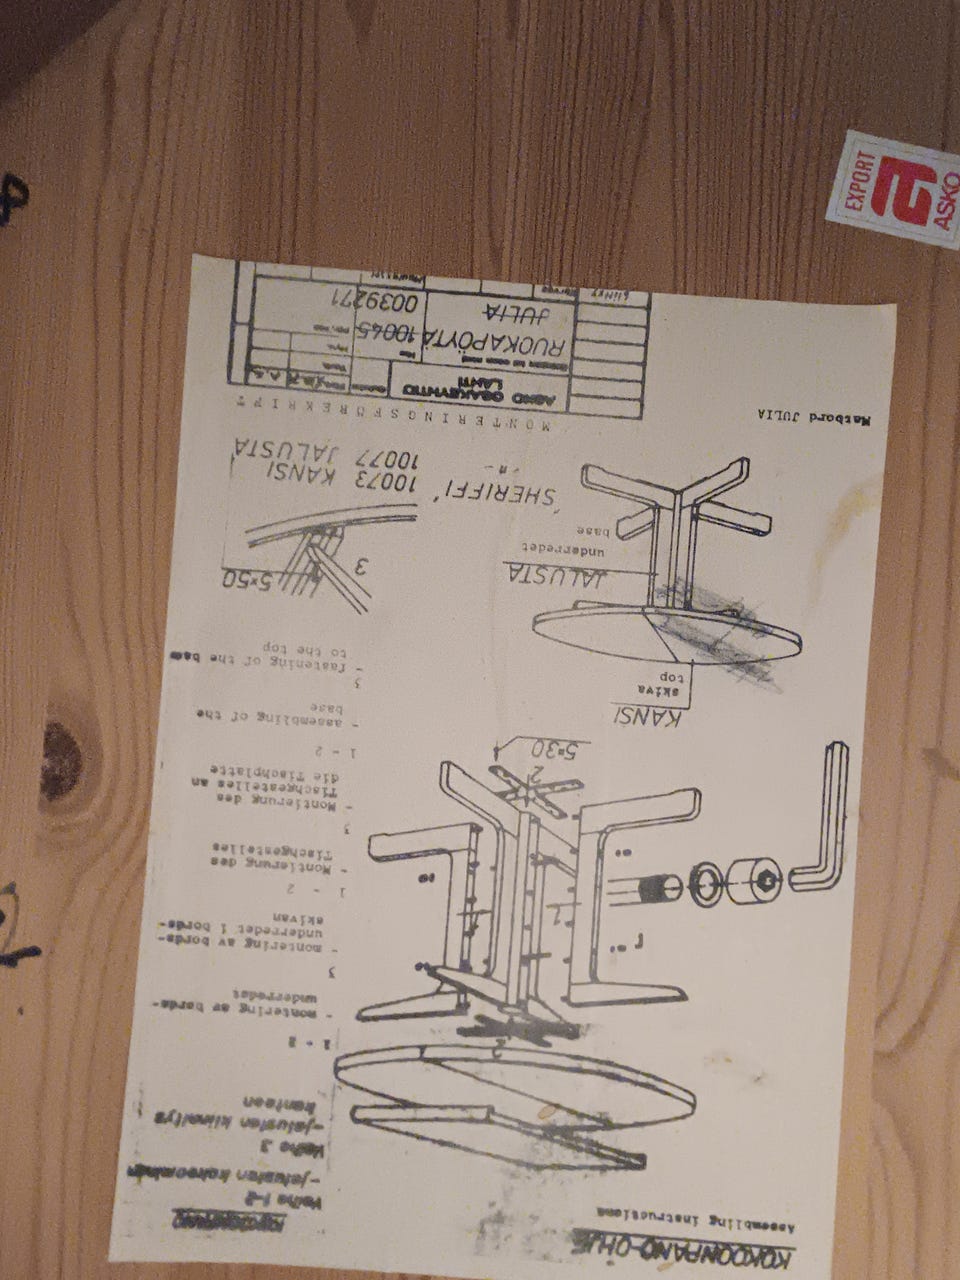 KOKOONPANO-OHJE
Assembling instructions
KOKOONPANO
Vaihe 1-2
-jalustan kokoominen
Vaihe 3
-jalustan kiinnitys
kanteen
1 - 2
- montering av bords-
underredet
3
- montering av bords-
underredet i bords-
skivan
1 - 2
- Montierung des
Tischgestelles
3
- Montierung des
Tischgestelles an
die Tischplatte
1 - 2
- assembling of the
base
3
- fastening of the base
to the top
2
1
1
2
5×30
KANSI
skiva
top
JALUSTA
underredet
base
3
5×50
"SHERIFFI"
10073 KANSI
10077 JALUSTA
Matbord JULIA
MONTERINGSFÖRESKRIFT
ASKO OSAKEYHTIÖ
LAHTI
RUOKAPÖYTÄ
JULIA
10045
0039271
EXPORT
ASKO